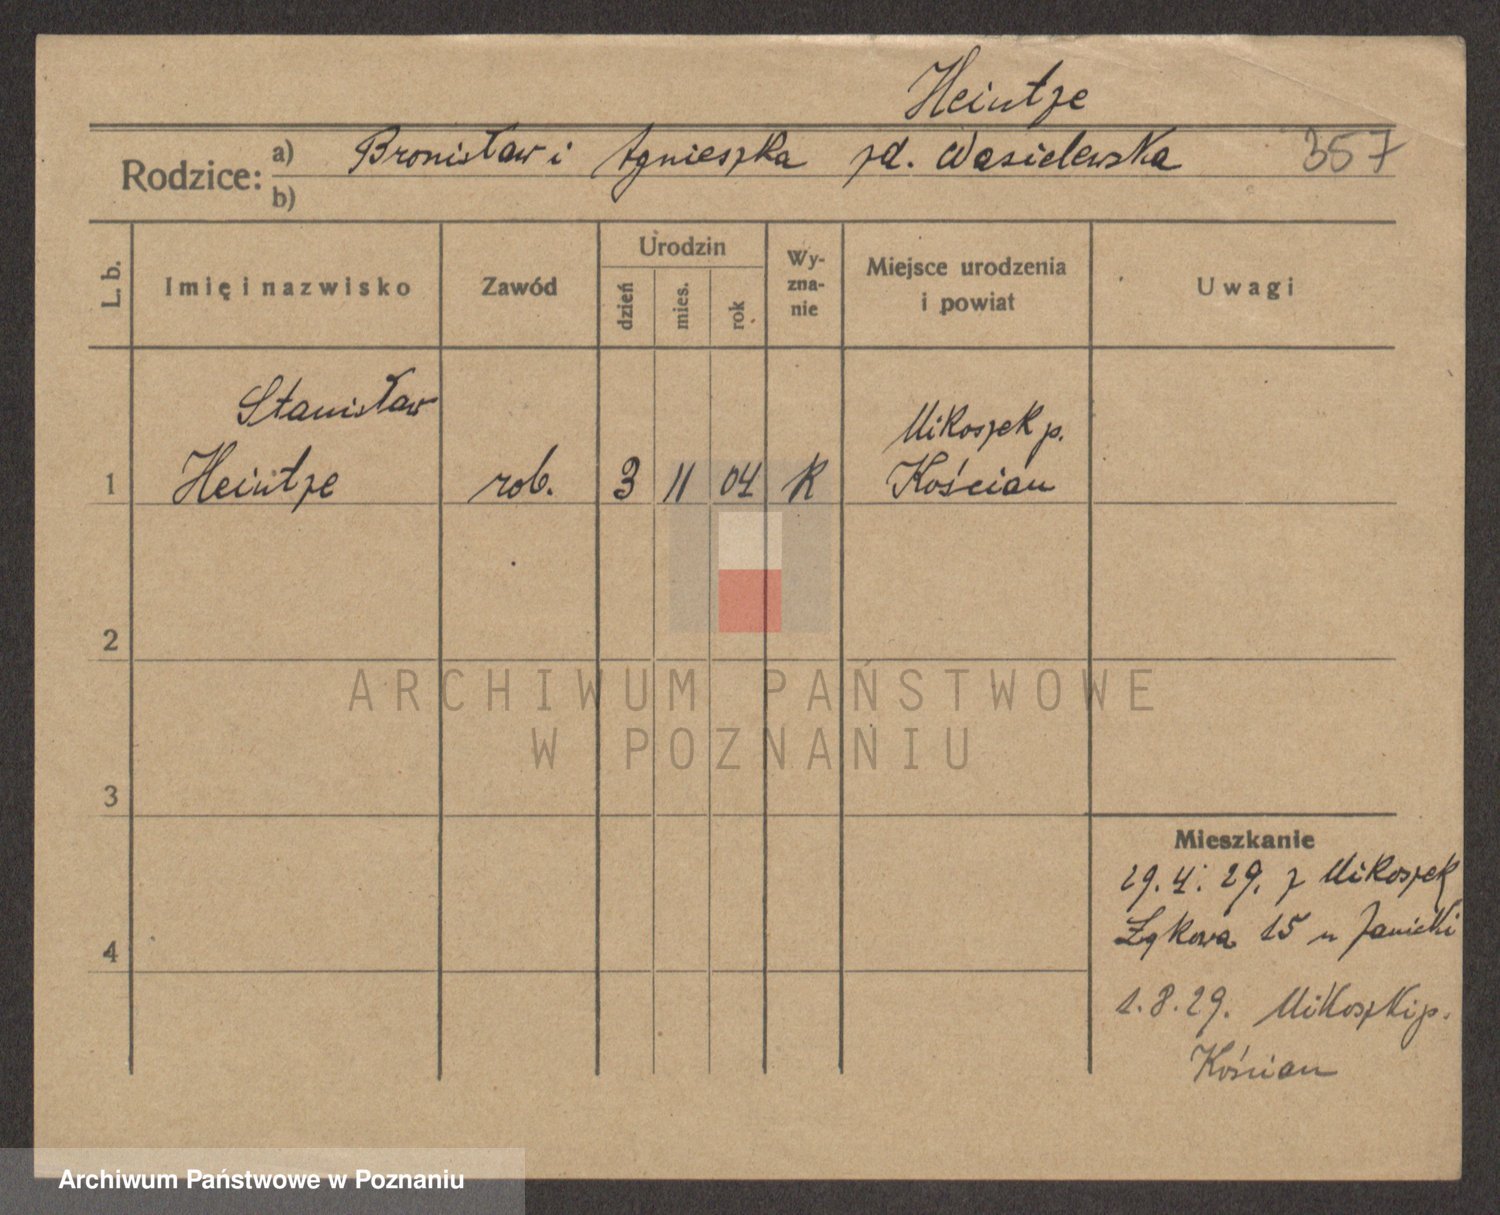 Heintze
Rodzice: a) Bronisław i Agnieszka zd. Wasielewska 357
b)
L. b. Imię i nazwisko Zawód Urodzin dzień mies. rok Wy-zna-nie Miejsce urodzenia i powiat Uwagi
Stanisław Mikoszek p.
1 Heintze rob. 3 11 04 K Kościan
2
ARCHIWUM PAŃSTWOWE
W POZNANIU
3
Mieszkanie
29. 4. 29. z Mikoszek
Łąkowa 15 u Janicki
4
1. 8. 29. Mikoszki p.
Kościan
Archiwum Państwowe w Poznaniu